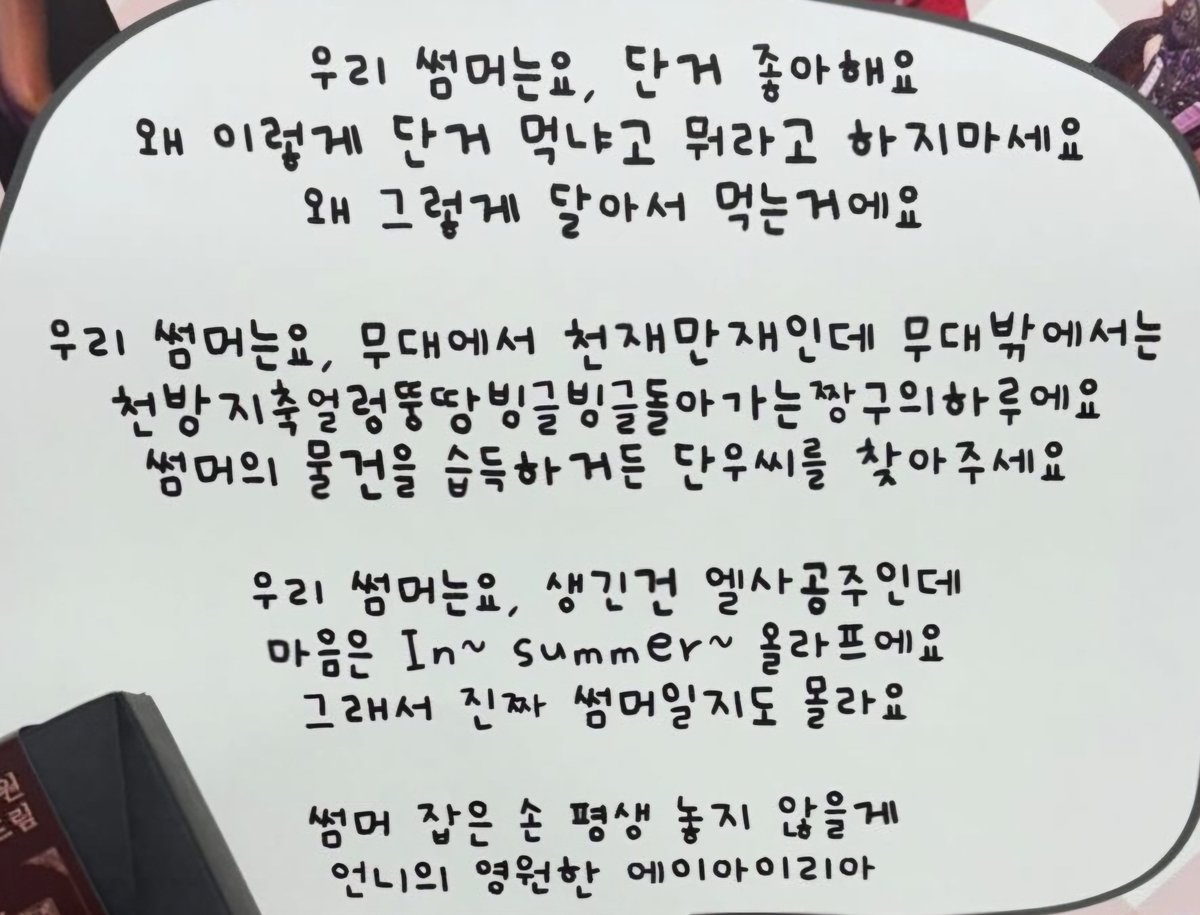 우리 썸머는요, 단거 좋아해요
왜 이렇게 단거 먹냐고 뭐라고 하지마세요
왜 그렇게 달아서 먹는거에요
우리 썸머는요, 무대에서 천재만재인데 무대밖에서는
천방지축얼렁뚱땅빙글빙글돌아가는짱구의하루에요
썸머의 물건을 습득하거든 단우씨를 찾아주세요
우리 썸머는요, 생긴건 엘사공주인데
마음은 In~ summer~ 올라프에요
그래서 진짜 썸머일지도 몰라요
썸머 잡은 손 평생 놓지 않을게
언니의 영원한 에이아이리아